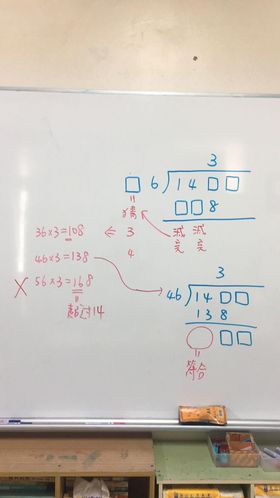 3
□6)14□□
□□8
‖
猜
3
4
減 減
變 變
36×3=108
46×3=138
56×3=168
超过14
3
46)14□□
138
○□□
‖
符合